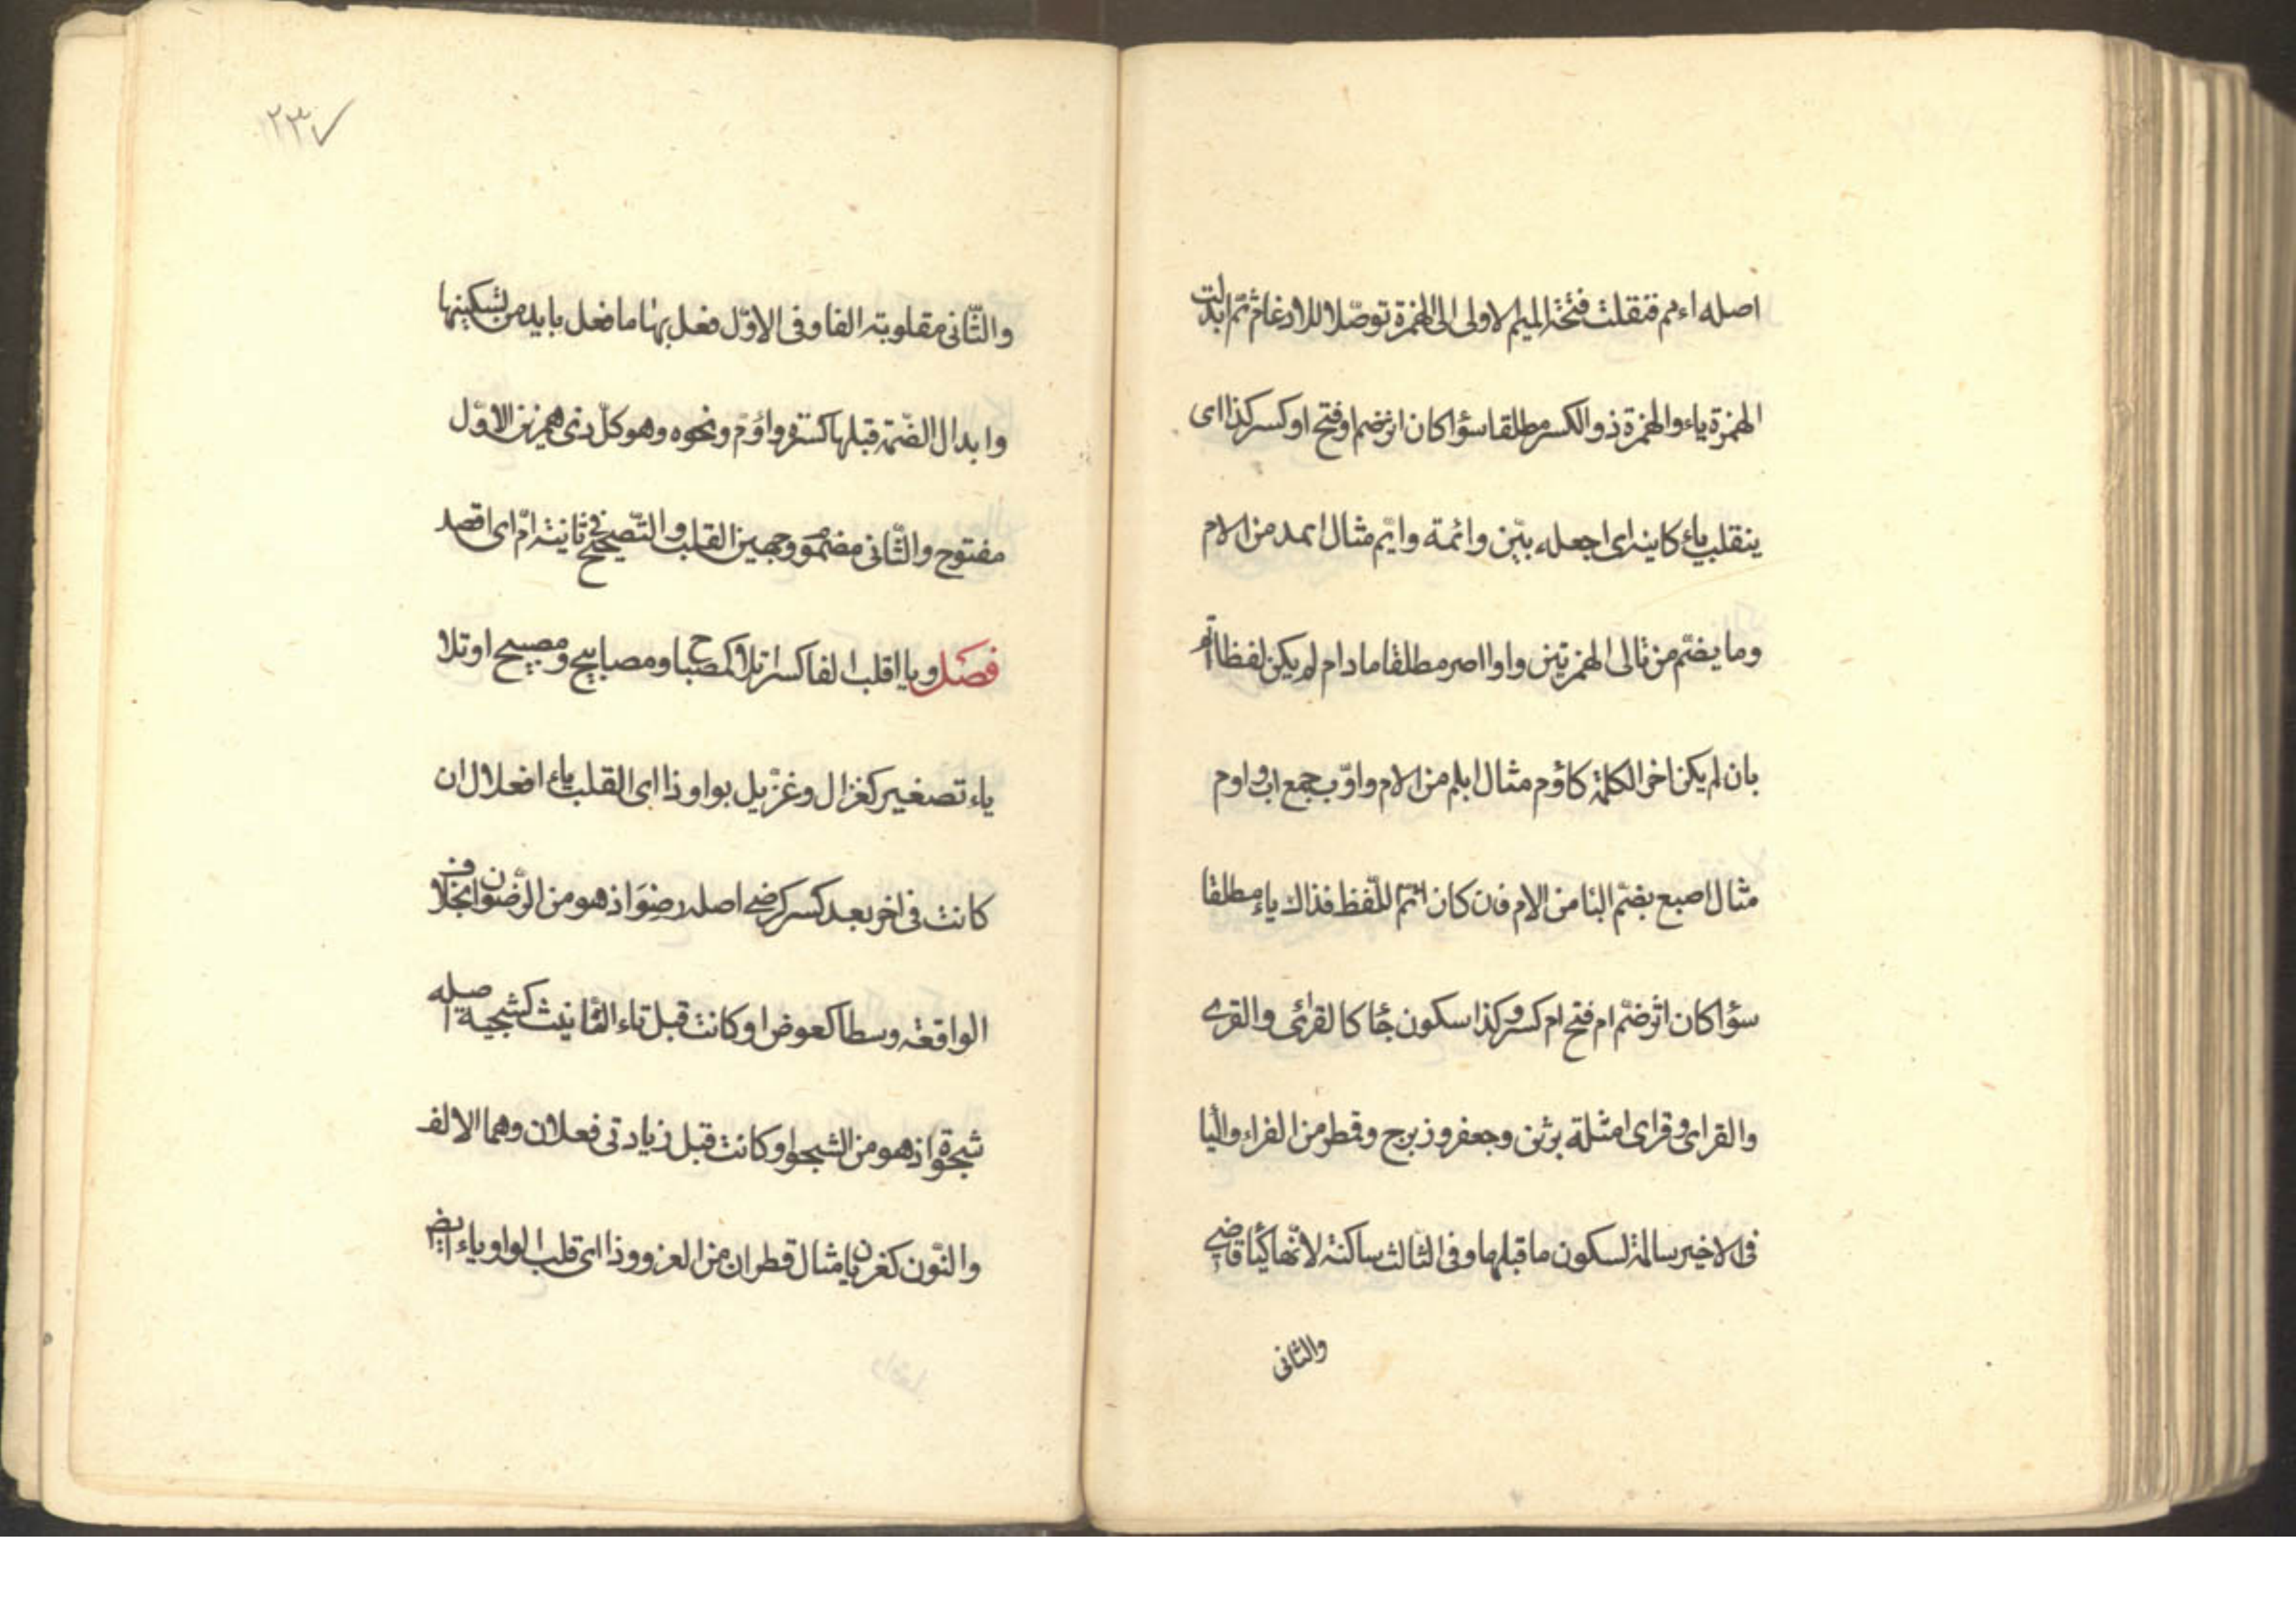 اصله اءمم فنقلت فتحة الميم الاولى الى الهمزة توصّلا للادغام ثمّ ابدلت
الهمزة ياء والهمزة ذو الكسر مطلقا سؤا كان اثر ضم او فتح او كسر كذا اى
ينقلب ياء كاينه اى اجعله بيّن وائمة وايّم مثال اثمد من الام
وما يضمّ من تالى الهمزتين واوا اصر مطلقا مادام لم يكن لفظا اتم
بان لم يكن اخر الكلمة كاؤم مثال ابلم من الام واوّب جمع اب واوم
مثال اصبع بضمّ البا من الام فان كان اتمّ اللّفظ فذاك ياء مطلقا
سؤا كان اثر ضمّ ام فتح ام كسر وكذا سكون جا كالقرائى والقرى
والقراى وقراى امثلة برثن وجعفر وزبرج وقمطر من القراء واليا
فى الاخير سالمة لسكون ما قبلها وفى الثالث ساكنة لانّها كيا قاضى
والثانى
٢٣٧
والثّانى مقلوبة الفا وفى الاوّل فعل بها ما فعل بايد من تسكينها
وابدال الضّمة قبلها كسرة واؤمّ ونحوه وهو كلّ ذى همزتين الاوّل
مفتوح والثّانى مضموم وجهين القلب والتّصحيح فى ثانيه امّ اى اقصد
فصل ويا اقلب الفا كسرا تلا كمصباح ومصابيح ومصيبيح او تلا
ياء تصغير كغزال وغزيّل بواو ذا اى القلب ياء افعلا لان
كانت فى اخر بعد كسر كرضى اصله رضو اذ هو من الرّضوان بخلاف
الواقعة وسطا كعوض او كانت قبل تاء التّانيث كشجية اصله
شجوة اذ هو من الشجو او كانت قبل زيادتى فعلان وهما الالف
والنّون كغزيان مثال قطران من الغزو وذا اى قلب الواو ياء ايضا